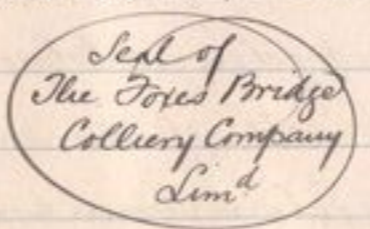 Seal of
The Foxes Bridge
Colliery Company
Limd